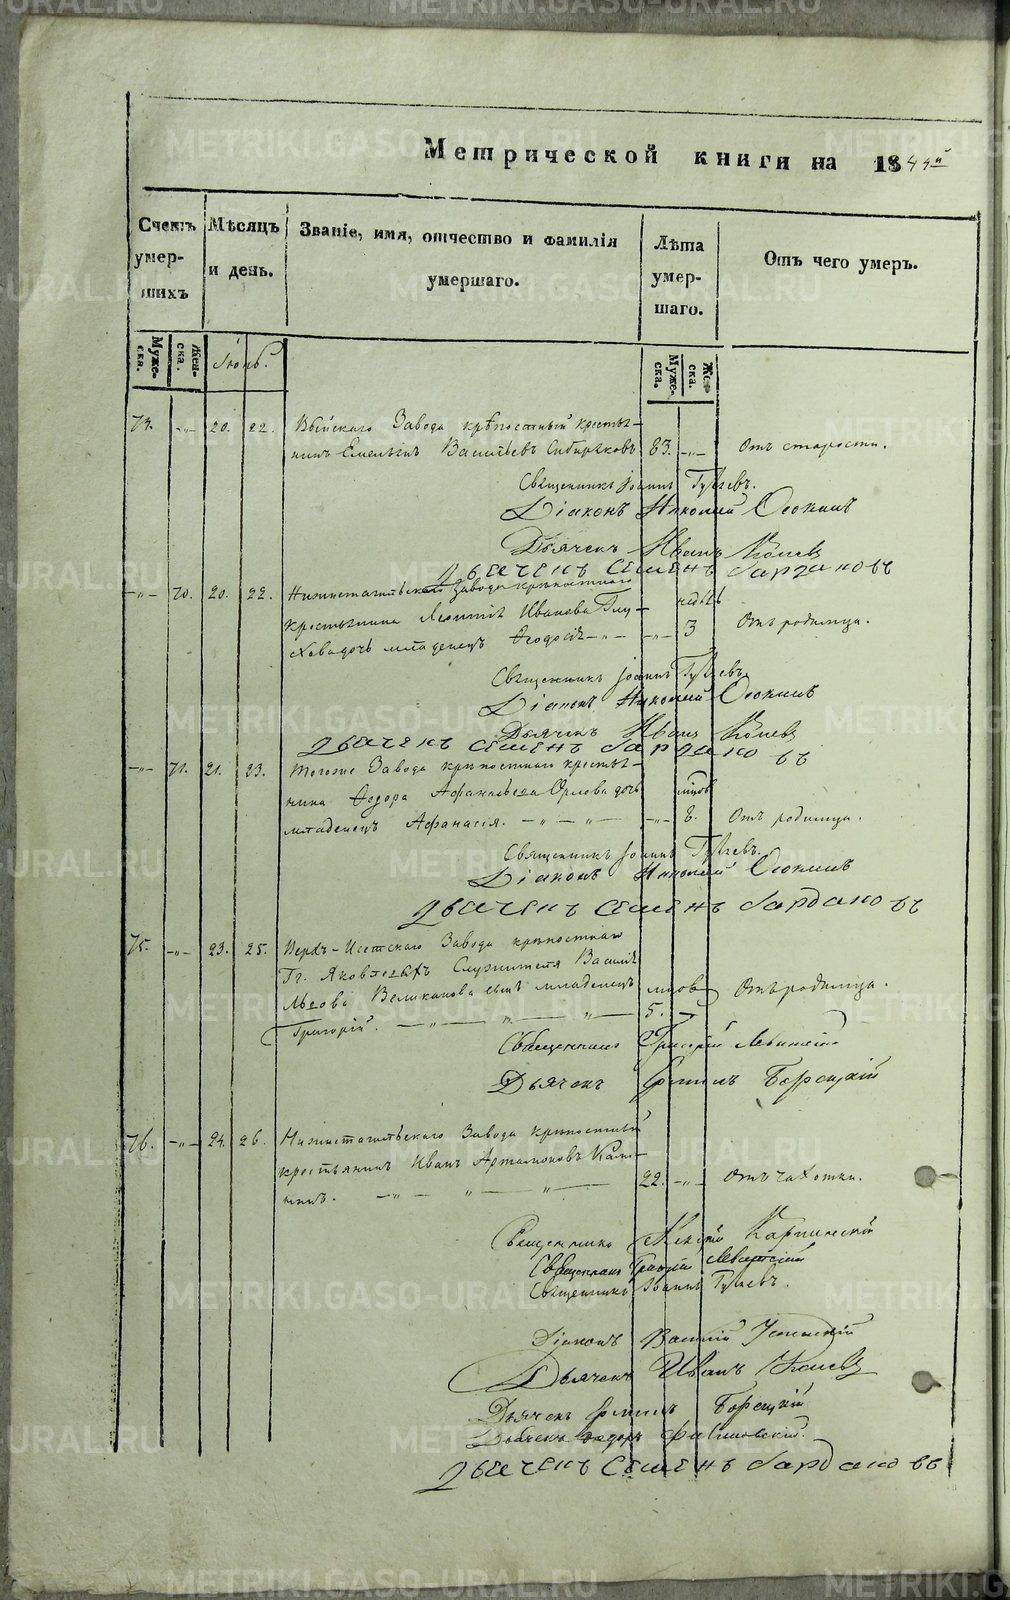 Метрической книги на 1844й
Счетъ умер- шихъ
Мѣсяцъ и день.
Званіе, имя, отчество и фамилія умершаго.
Лѣта умер- шаго.
Отъ чего умеръ.
Муже- ска.
Жен- ска.
Іюнь.
Муже- ска.
Жен- ска.
74. -„- 20. 22. Выйскаго Завода крѣпостный крестья-
нинъ Емельянъ Васильевъ Сибиряковъ 83. -„- Отъ старости.
Священникъ Іоаннъ
Діаконъ Николай Осокинъ
Дьячекъ Иванъ
Дьячекъ Семенъ
-„- 70. 20. 22. Нижнетагильскаго Завода крѣпостнаго
крестьянина Леонтія Иванова недѣль
дочь младенецъ Ѳеодосія -„- -„- 3 Отъ родимца.
Священникъ Іоаннъ
Діаконъ Николай Осокинъ
Дьячекъ Иванъ
Дьячекъ Семенъ
-„- 71. 21. 23. Тогоже Завода крѣпостнаго крестья-
нина Ѳедора Афанасьева Орлова дочь мцовъ
младенецъ Афанасія. -„- -„- -„- 8. Отъ родимца.
Священникъ Іоаннъ
Діаконъ Николай Осокинъ
Дьячекъ Семенъ
75. -„- 23. 25. Верхъ-Исетскаго Завода крѣпостнаго
Гг. Яковлевыхъ Служителя Василія
Львова Великанова сынъ младенецъ мцовъ Отъ родимца.
Григорій. -„- -„- -„- 5.
Священникъ Григорій Левитскій
Дьячекъ Борецкій
76. -„- 24. 26. Нижнетагильскаго Завода крѣпостный
крестьянинъ Иванъ Артамоновъ
-„- „ „ 22. -„- Отъ чахотки.
Священникъ Алексій Карпинскій
Священникъ Григорій Левитскій
Священникъ Іоаннъ
Діаконъ Василій Успенскій
Дьячекъ Иванъ
Дьячекъ Борецкій
Дьячекъ Ѳедоръ
Дьячекъ Семенъ
METRIKI.GASO-URAL.RU